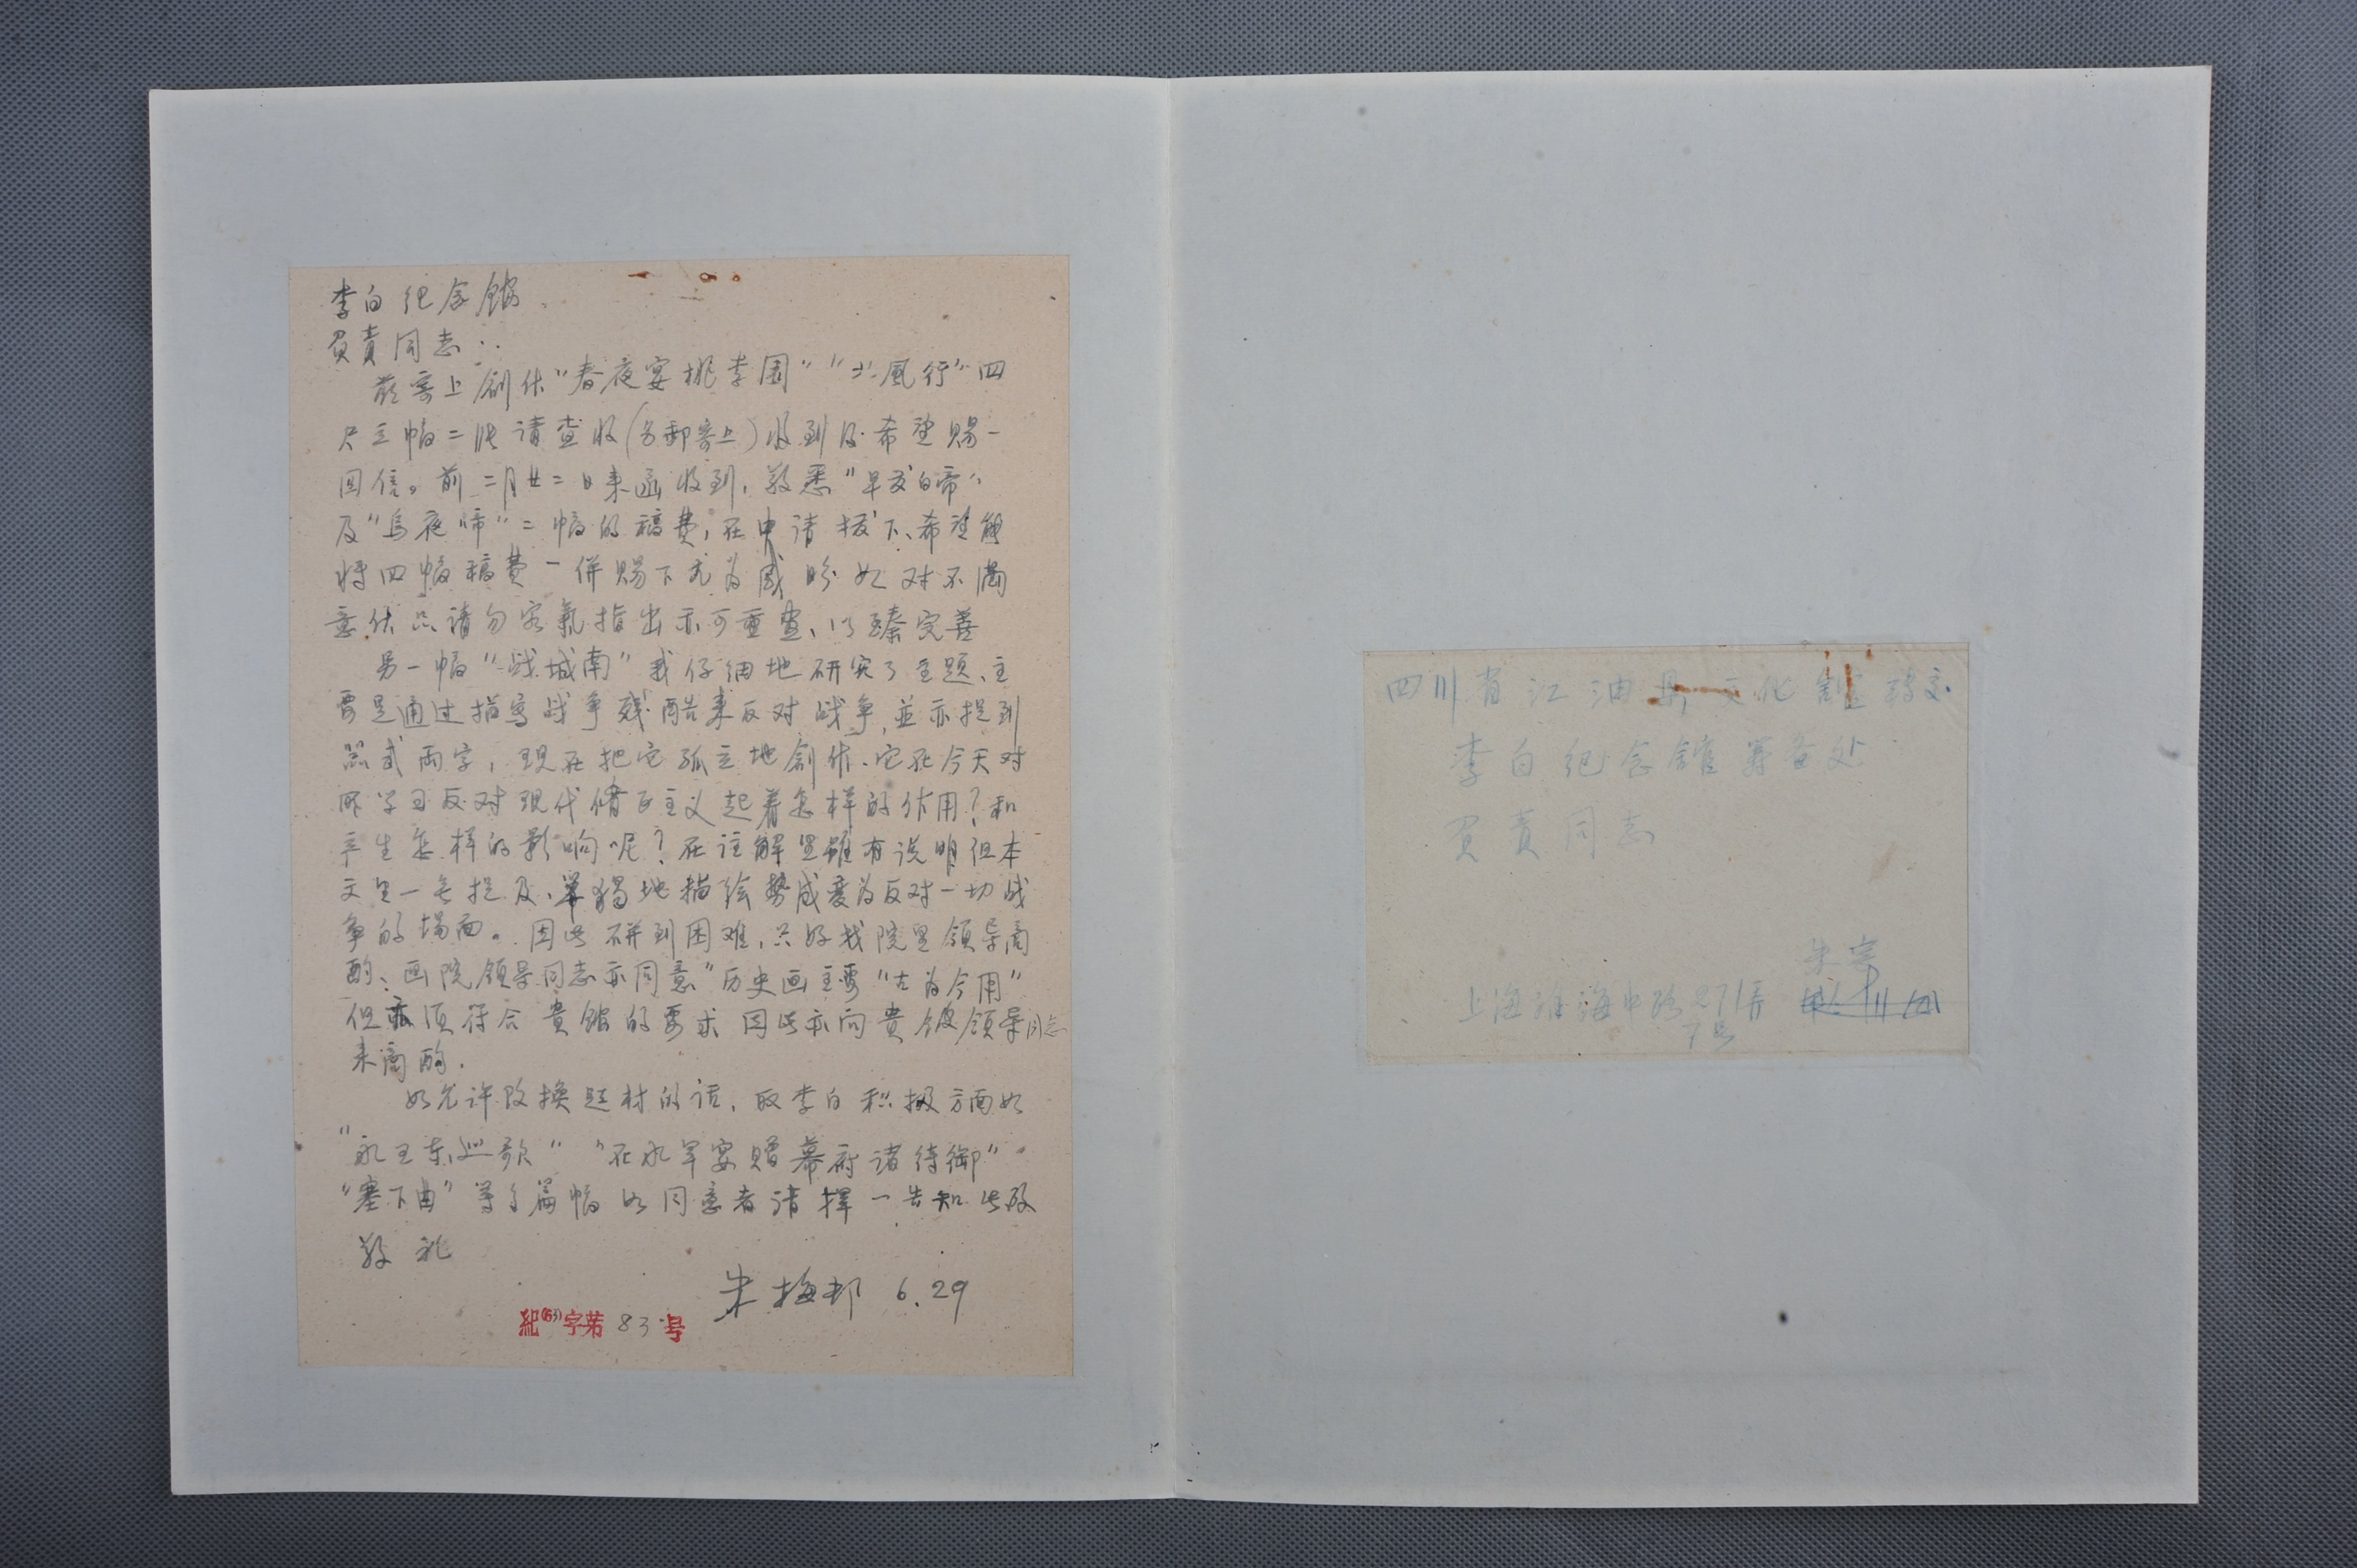 李白纪念馆
負責同志：
兹寄上创作"春夜宴桃李園""北風行"四
尺立幅二张請查收(另郵寄上)收到后希望赐一
回信。前二月廿二日来函收到,敬悉"早发白帝"
及"烏夜啼"二幅的稿费,在申请拨下、希望能
将四幅稿费一併赐下尤为感盼如对不满
意作品请勿客氣指出亦可重画、以臻完善
另一幅"战城南"我仔细地研究了主题、主
要是通过描写战争残酷来反对战争,並亦提到
武两字,现在把它孤立地创作、它在今天对
所学习反对现代修正主义起着怎样的作用?和
产生怎样的影响呢?在注解里虽有说明但本
文里一无提及、单独地描绘势成变为反对一切战
争的場面。因此碰到困难,只好找院里领导商
酌、画院领导同志亦同意"历史画主要"古为今用"
但亦须符合貴館的要求因此亦向貴館领导同志
来商酌.
如允许改换题材的话,取李白积极方面如
"永王东巡歌""在水军宴赠幕府诸侍御"
"塞下曲"等篇幅如同意者请择一告知此致
敬礼
朱梅邨 6.29
紀(63)字第83号
四川省江油县文化館转交
李白纪念館筹备处
負責同志
上海淮海中路271弄
7号
朱寄